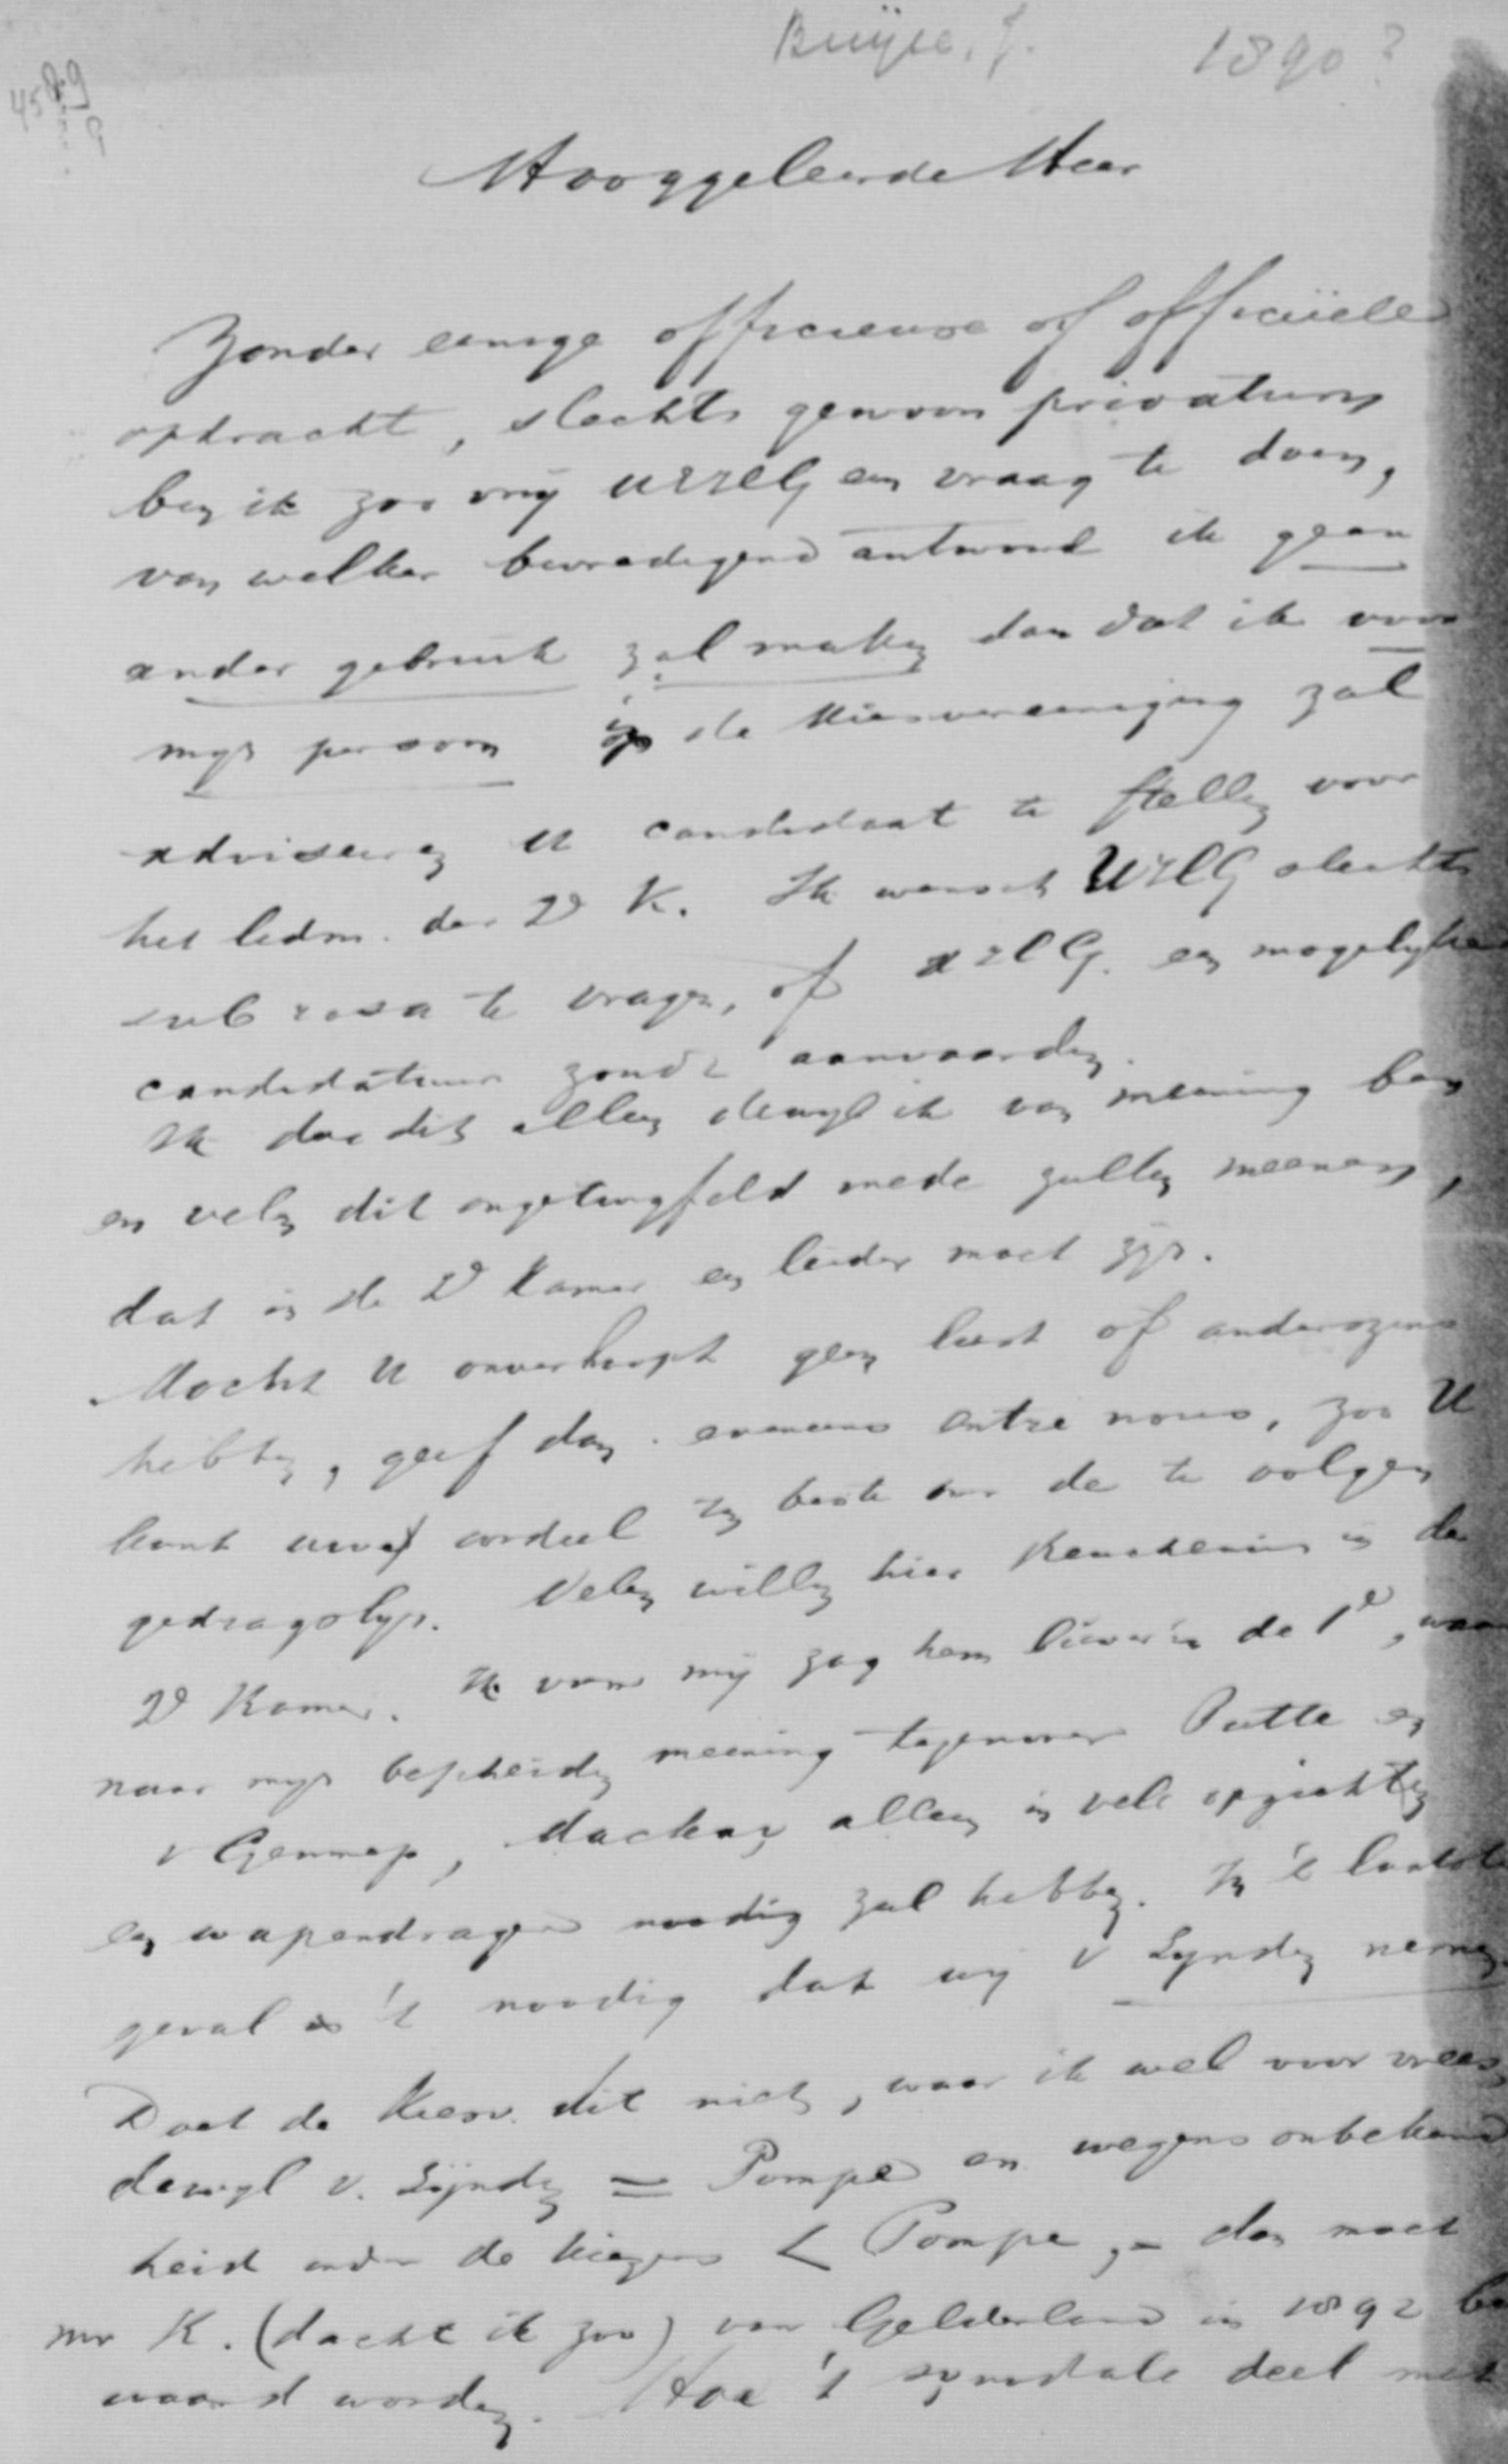 Buijse, J. 1890?
4589
9
Hooggeleerde Heer
Zonder eenige officieuse of officiëele
opdracht, slechts gewoon privatum
ben ik zoo vrij UZELG een vraag te doen,
van welker bevredigend antwoord ik geen
ander gebruik zal maken dan dat ik voor
mijn persoon in de Kiesvereeniging zal
adviseeren U candidaat te stellen voor
het lidm. der 2e K. Ik wensch UZELG slechts
sub rosa te vragen, of UZELG. een mogelijke
candidatuur zoudt aanvaarden.
Ik doe dit alleen dewijl ik van meening ben
en velen dit ongetwijfeld mede zullen meenen,
dat in de 2e Kamer een leider moet zijn.
Mocht U onverhoopt geen lust of anderszins
hebben, geef dan eveneens entre nous, zoo U
kunt uw oordeel ten beste over de te volgen
gedragslijn. Velen willen hier Keuchenius in de
2e Kamer. Ik voor mij zag hem liever in de 1e, waar
naar mijn bescheiden meening tegenover Putte en
v Gennep, Mackay alleen in vele opzichten
een wapendrager noodig zal hebben. In 't laatste
geval is 't noodig dat wij v Lynden nemen.
Doet de Kiesv. dit niet, waar ik wel voor vrees,
dewijl v. Lijnden = Pompe en wegens onbekend
heid onder de kiezers < Pompe, - dan moet
mr K. (dacht ik zoo) voor Gelderland in 1892 be
waard worden. Hoe 't synodale deel met